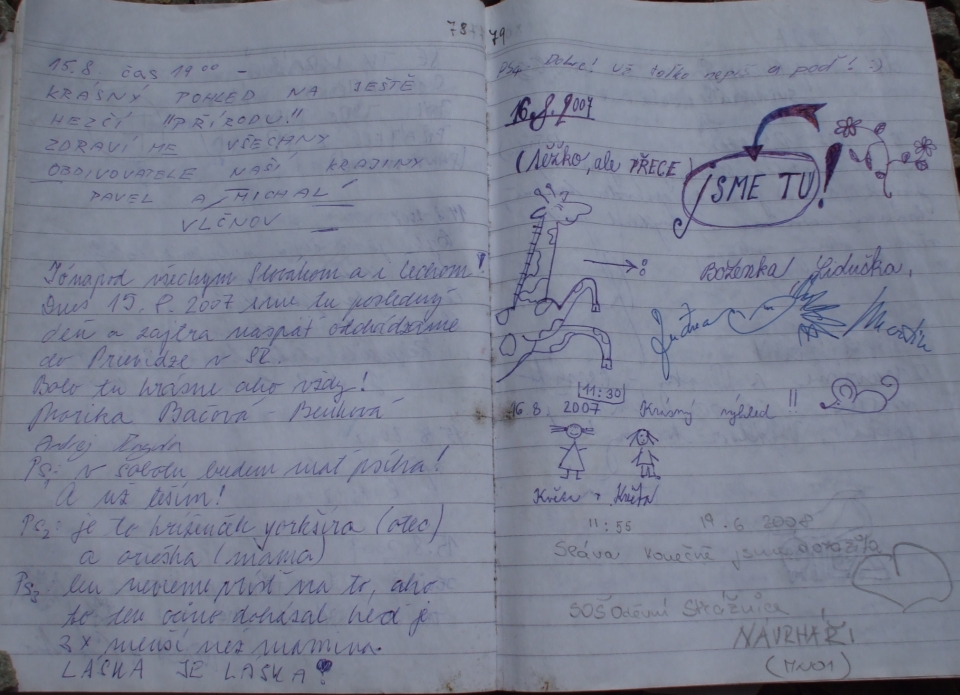 78
15.8. čas 19⁰⁰ –
KRÁSNÝ POHLED NA JEŠTĚ
HEZČÍ "PŘÍRODU!"
ZDRAVÍME VŠECHNY
OBDIVOVATELE NAŠÍ KRAJINY
PAVEL A MICHAL
VLČNOV
všechným Slovákom a i Čechom!
Dnes 15.8.2007 sme tu posledný
deň a zajtra naspäť odchádzame
do Prievidze v SR.
Bolo tu krásne ako vždy!
Monika Bacová
Andrej
PS₁: v sobotu budem mať psíka!
A už teším!
PS₂: je to kríženček yorkšíra (otec)
a orieška (mama)
PS₃ len neviem prísť na to, ako
to ten ocino dokázal keď je
3x menší než mamina.
LÁSKA JE LÁSKA!
79
PS4: Dobre! Už toľko nepíš a poď! :)
16.8.2007
(těžko, ale PŘECE)
JSME TU!
Boženka, Liduška,
Martin
11:30
16.8. 2007 Krásný výhled !!
Květa + Květa
11:55 19.6 2008
Sláva konečně jsme dorazily
SOŠ Oděvní Strážnice
NÁVRHÁŘI